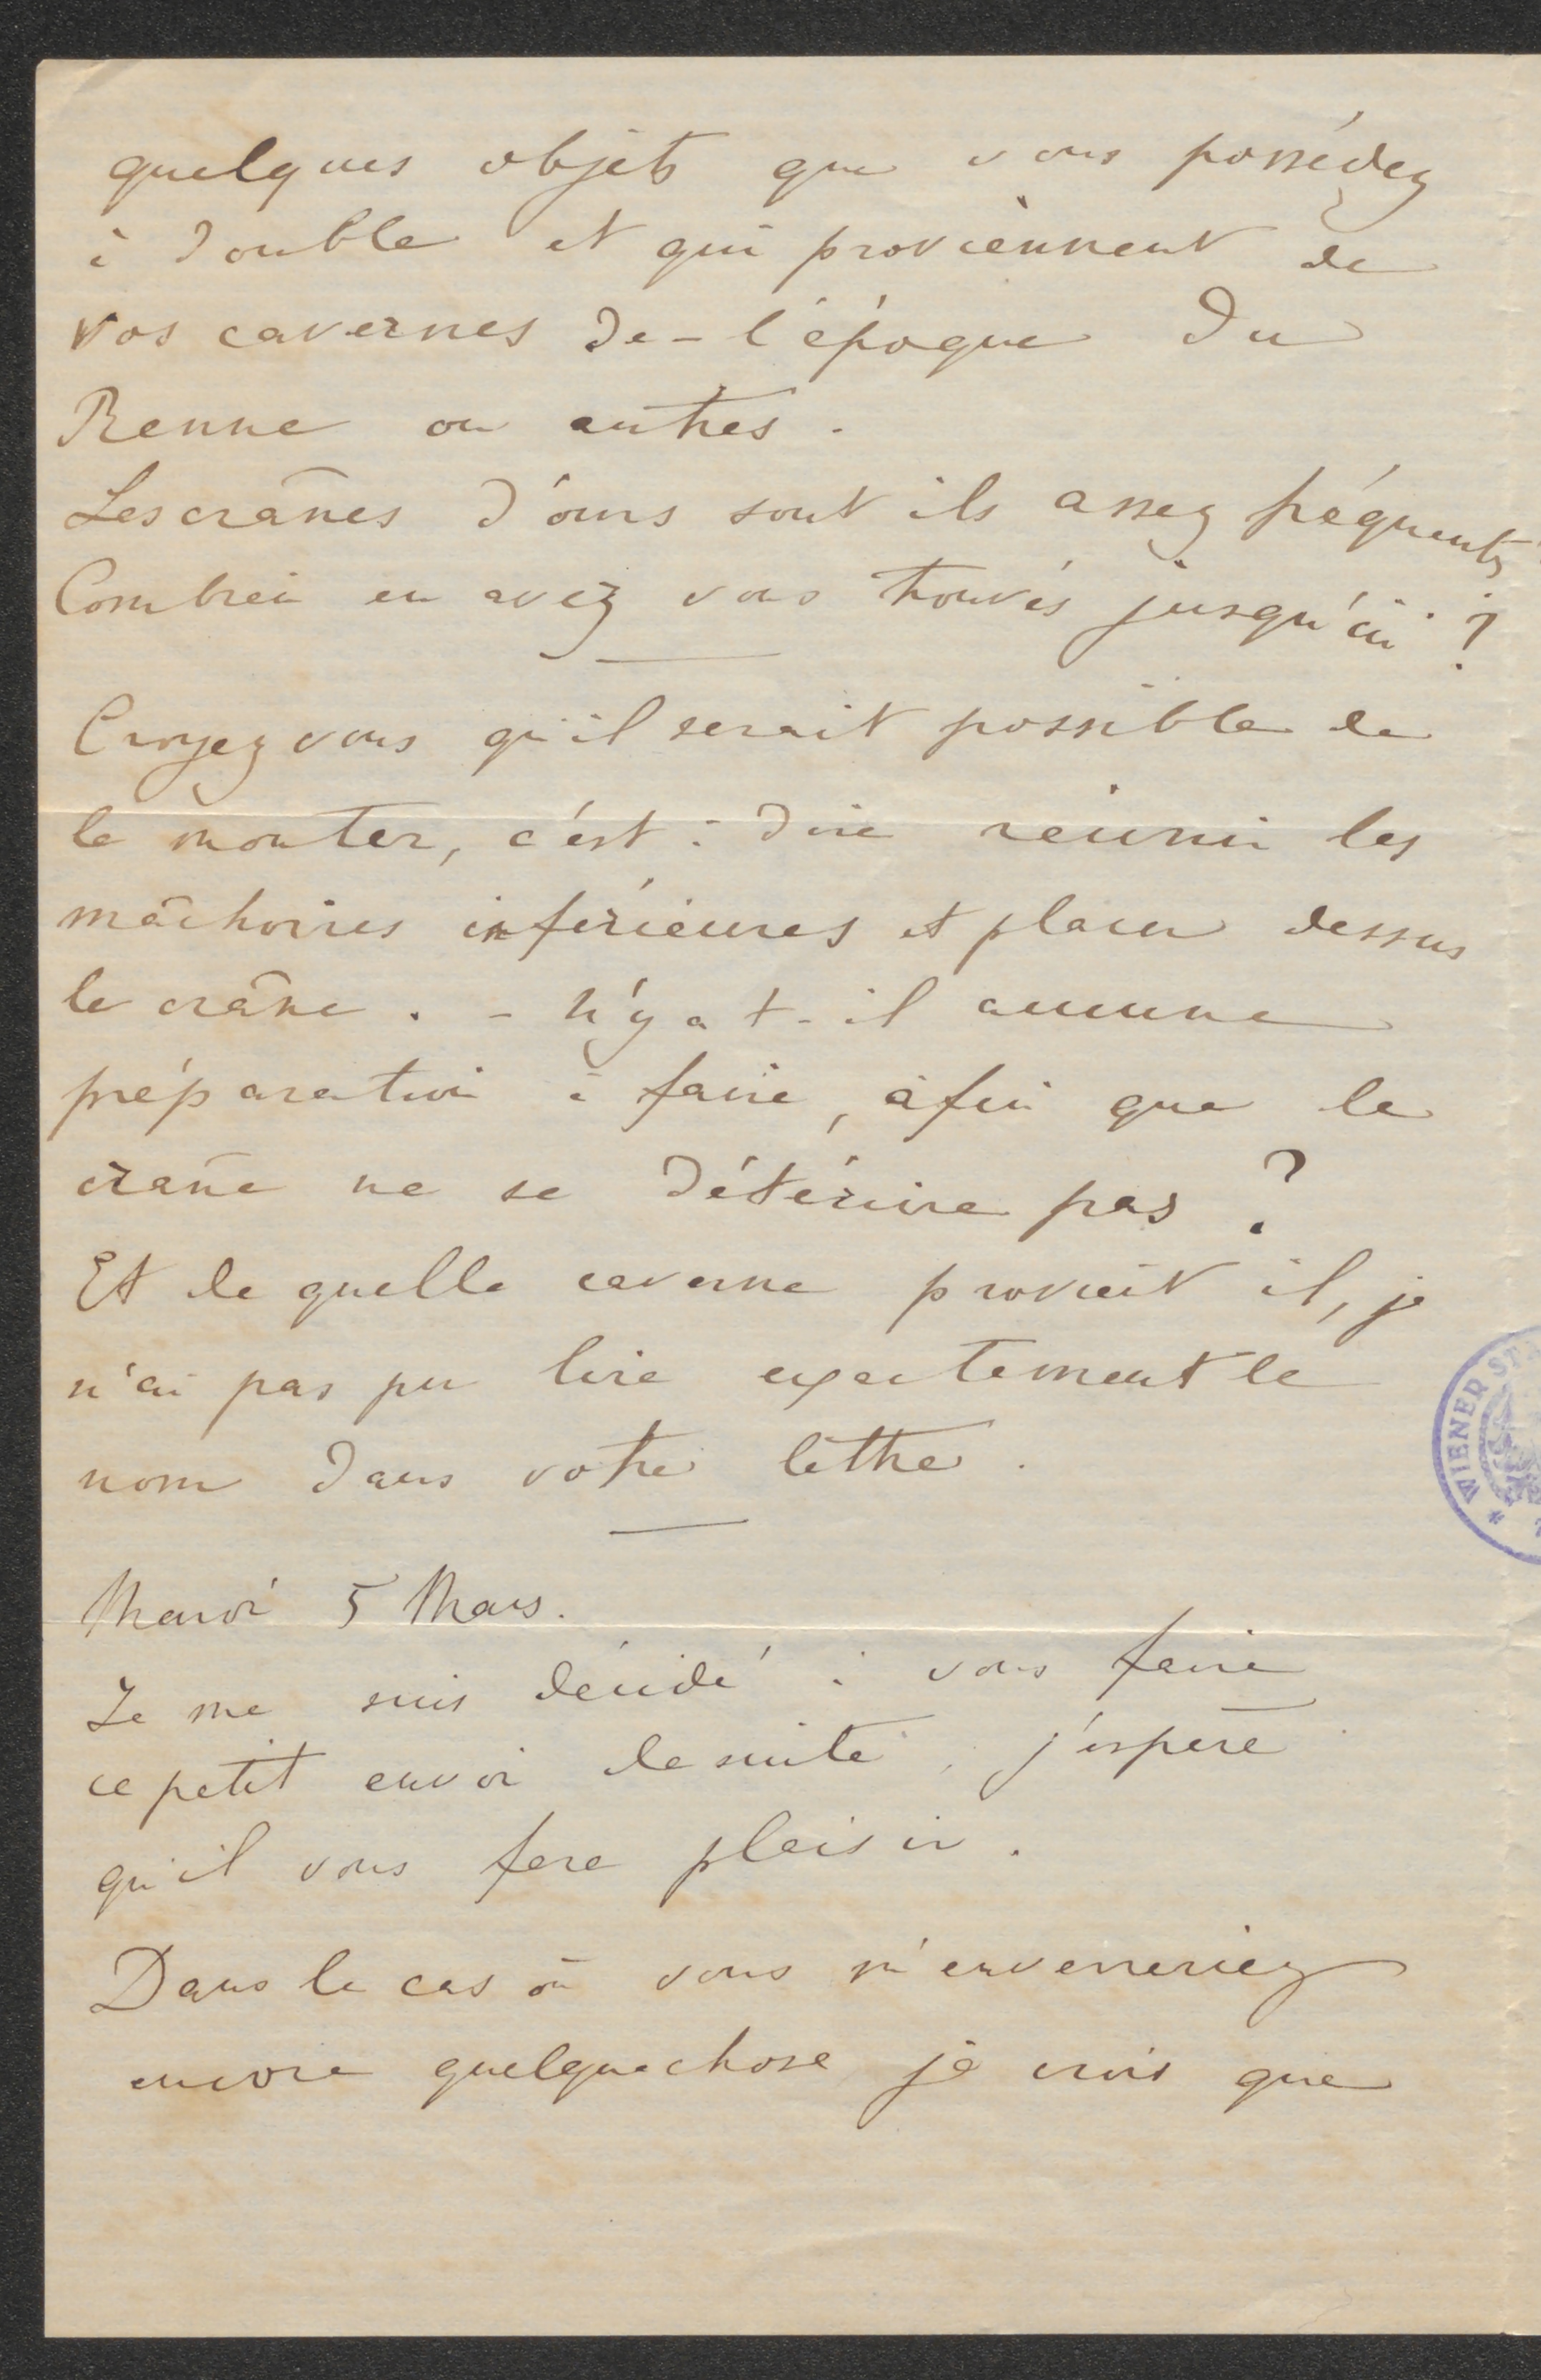 quelques objets que vous possédez
à double et qui proviennent de
vos cavernes de-l'époque du
Renne ou autres.
Les crânes d'ours sont ils assez fréquents
Combien en avez vous trouvés jusqu'ici ?
Croyez vous qu'il serait possible de
le monter, c'est à dire réunir les
mâchoires inférieures et placer dessus
le crâne. - N'y a t-il aucune
préparation à faire, afin que le
crâne ne se détériore pas ?
Et de quelle caverne provient il, je
n'ai pas pu lire exactement le
nom dans votre lettre.
WIENER ST
Mardi 5 Mars.
Je me suis décidé à vous faire
ce petit envoi de suite, j'espère
qu'il vous fera plaisir.
Dans le cas où vous m'enverreriez
encore quelquechose je crois que